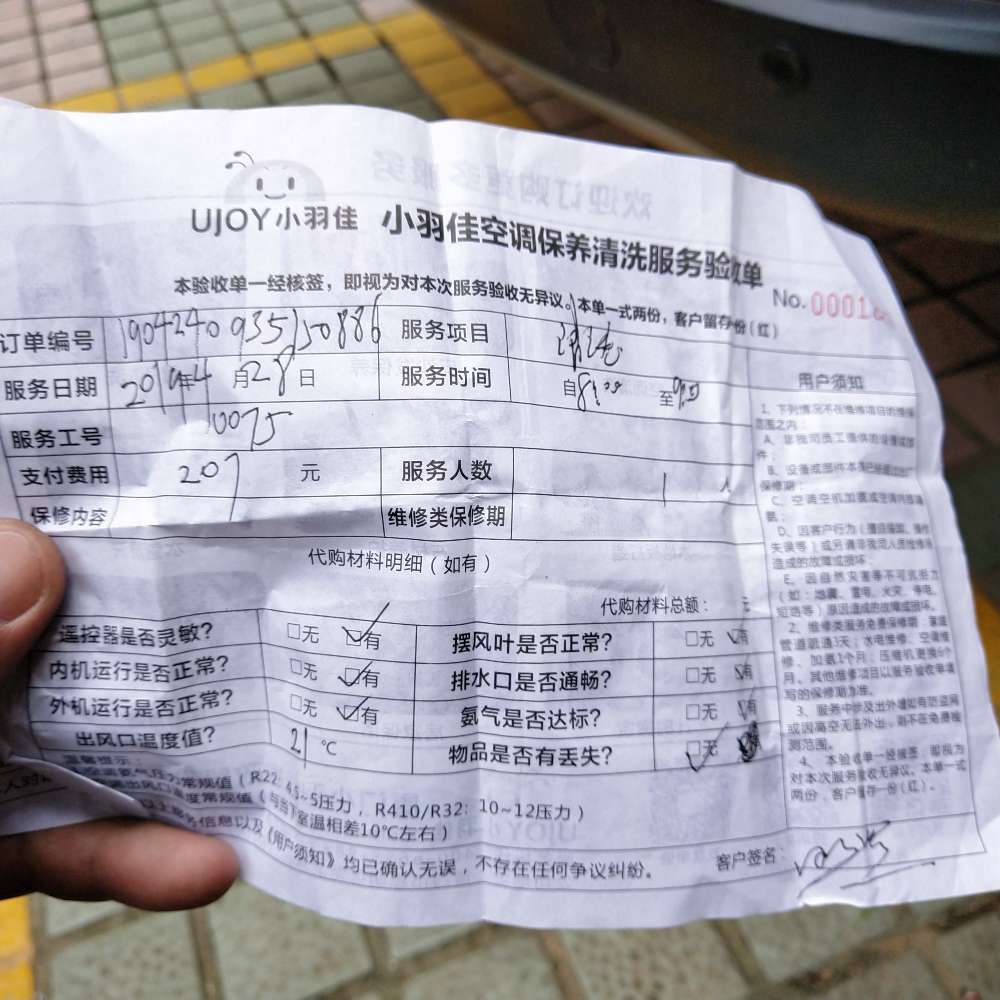 UJOY小羽佳 小羽佳空调保养清洗服务验收单
本验收单一经核签，即视为对本次服务验收无异议。本单一式两份，客户留存一份（红）
No.00018
订单编号 190424093550886 服务项目 清洗
服务日期 2019年4月28日 服务时间 自8:00至9:0
服务工号 10075
支付费用 207 元 服务人数 1人
保修内容 维修类保修期
代购材料明细（如有）
代购材料总额： 元
遥控器是否灵敏? □无 □有 摆风叶是否正常? □无 有
内机运行是否正常? □无 □有 排水口是否通畅? □无 有
外机运行是否正常? □无 □有 氨气是否达标? □无 有
出风口温度值? 21 ℃ 物品是否有丢失? □无
温馨提示：
压力常规值（R22：4.5~5压力，R410/R32：10~12压力）
出风口温度常规值（与当下室温相差10℃左右）
以上服务信息以及《用户须知》均已确认无误，不存在任何争议纠纷。
客户签名：
用户须知
1、下列情况不在维修项目的维保
范围之内：
A、非我司员工提供的设备或部
件；
B、设备或部件本身已经超过
保修期；
C、空调空机加氨或空调内部漏
氨；
D、因客户行为（擅自操作、操作
失误等）或另请非我司人员维修所
造成的故障或损坏；
E、因自然灾害等不可抗拒力
（如：地震、雷电、火灾、停电、
短路等）原因造成的故障或损坏。
2、维修类服务免费保修期：家庭
管道疏通3天；水电维修、空调维
修、加氨1个月；压缩机更换6个
月、其他维修项目以服务验收单填
写的保修期为准。
3、服务中涉及出外墙如有防盗网
或因高空无法外出，则不在免费检
测范围。
4、本验收单一经核签，即视为
对本次服务验收无异议。本单一式
两份，客户留存一份（红）。